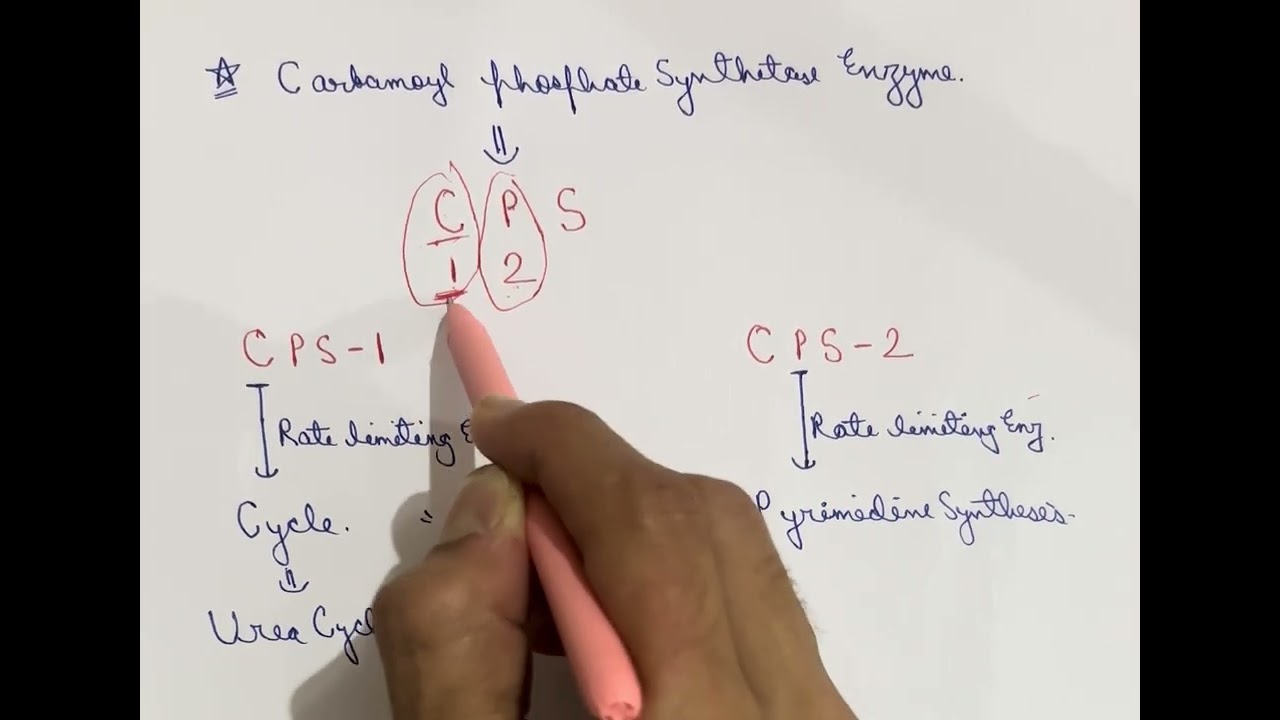 ☆ Carbamoyl phosphate Synthetase Enzyme.
⇓
C P S
1 2
CPS-1
CPS-2
Rate limiting E
Rate limiting Enz.
Cycle. "
Pyrimedine Synthesis-
⇓
Urea Cycl